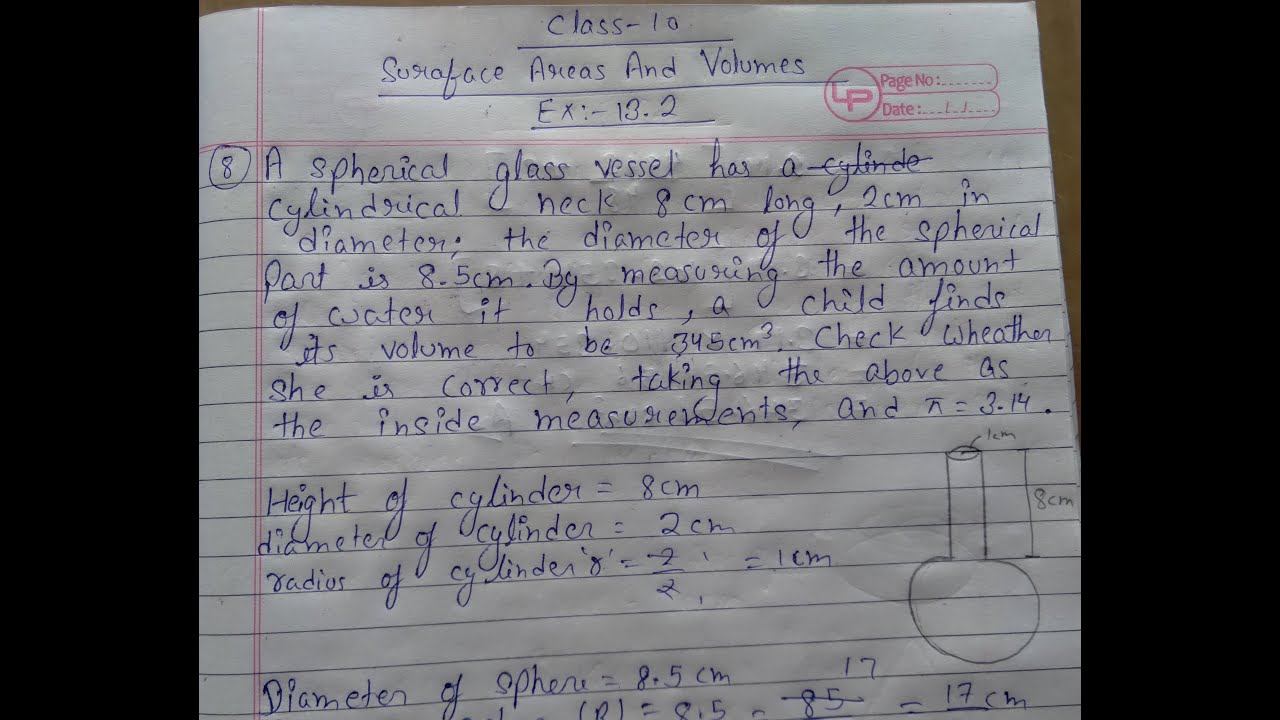 Class-10
Suraface Areas And Volumes
LP Page No:.......
Date:...../...../.....
Ex:-13.2
8 A spherical glass vessel has a cylinde
cylindrical neck 8 cm long, 2cm in
diameter; the diameter of the spherical
Part is 8.5cm. By measuring the amount
of water it holds, a child finds
its volume to be 345cm³. Check wheather
she is correct, taking the above as
the inside measurements, and π = 3.14.
1cm
8cm
Height of cylinder = 8cm
diameter of cylinder = 2cm
radius of cylinder 'r' = 2/2 = 1cm
Diameter of sphere = 8.5 cm
(R) = 8.5 = 85 17 = 17 cm